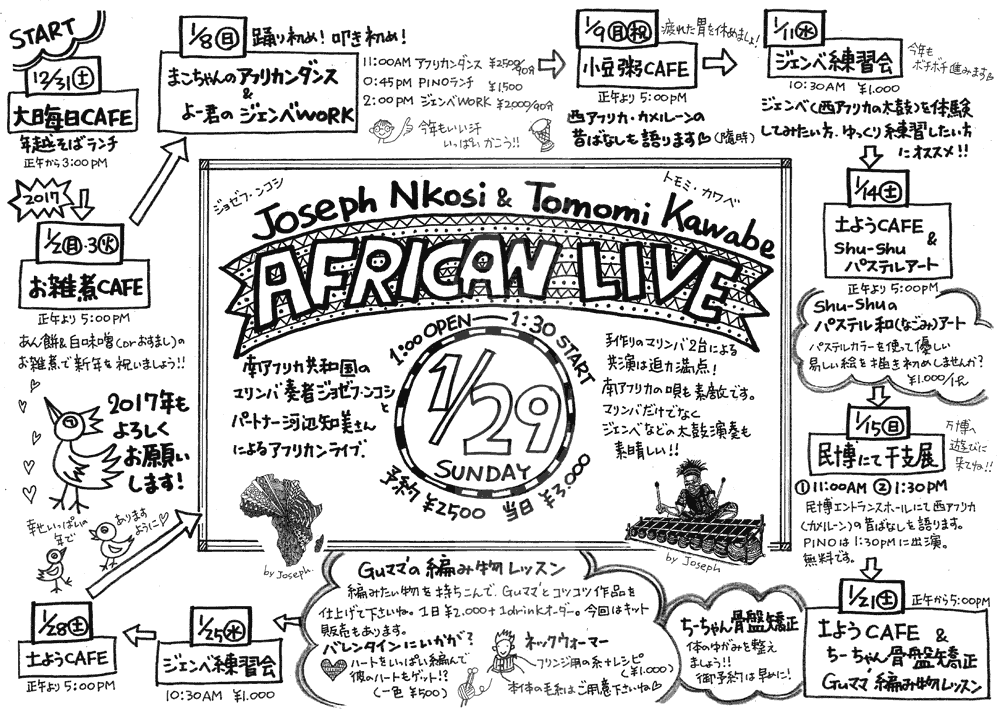 START
12/31(土)
大晦日CAFE
年越そばランチ
正午から3:00PM
2017
1/2(月)・3(火)
お雑煮CAFE
正午より5:00PM
あん餅&白味噌(orおすまし)の
お雑煮で新年を祝いましょう!!
2017年も
よろしく
お願い
します!
幸せいっぱいの
年で
あります
ように♡
1/8(日)
踊り初め!叩き初め!
まこちゃんのアフリカンダンス
&
よー君のジェンベWORK
11:00AM アフリカンダンス ¥2500/90分
0:45PM PINOランチ ¥1500
2:00PM ジェンベWORK ¥2000/90分
今年もいい汗
いっぱいかこう!!
1/9(月)(祝)
疲れた胃を休めましょ!
小豆粥CAFE
正午より5:00PM
西アフリカ・カメルーンの
昔ばなしも語ります♡(随時)
1/11(水)
ジェンベ練習会
今年も
ボチボチ進みます
10:30AM ¥1.000
ジェンベ(西アフリカの太鼓)を体験
してみたい方、ゆっくり練習したい方
にオススメ!!
1/14(土)
土ようCAFE
&
Shu-Shu
パステルアート
正午より5:00PM
Shu-Shuの
パステル和(なごみ)アート
パステルカラーを使って優しい
易しい絵を描き初めしませんか?
¥1.000/1枚
1/15(日)
民博にて干支展
万博へ
遊びに
来てね!!
①11:00AM ②1:30PM
民博エントランスホールにて西アフリカ
(カメルーン)の昔ばなしを語ります。
PINOは1:30PMに出演。
無料です。
1/21(土)
正午から5:00PM
土ようCAFE &
ちーちゃん骨盤矯正
Guママ編み物レッスン
ちーちゃん骨盤矯正
体のゆがみを整え
ましょう!!
御予約は早めに!
Guママの編み物レッスン
編みたい物を持ちこんで、Guママとコツコツ作品を
仕上げて下さいね。1日¥2.000+1drinkオーダー。今回はキット
販売もあります。
バレンタインにいかが?
ハートをいっぱい編んで
彼のハートもゲット!?
(一色 ¥500)
ネックウォーマー
フリンジ用の糸+レシピ
(¥1.000)
本体の毛糸はご用意下さいね♡
1/25(水)
ジェンベ練習会
10:30AM ¥1.000
1/28(土)
土ようCAFE
正午より5:00PM
ジョゼフ・ンコシ
トモミ・カワベ
Joseph Nkosi & Tomomi Kawabe
AFRICAN LIVE
1:00 OPEN — 1:30 START
1/29
SUNDAY
予約¥2500 当日¥3.000
南アフリカ共和国の
マリンバ奏者ジョゼフ・ンコシと
パートナー河辺知美さん
によるアフリカンライブ。
手作りのマリンバ2台による
共演は迫力満点!
南アフリカの唄も素敵です。
マリンバだけでなく
ジェンベなどの太鼓演奏も
素晴しい!!
by Joseph.
by Joseph